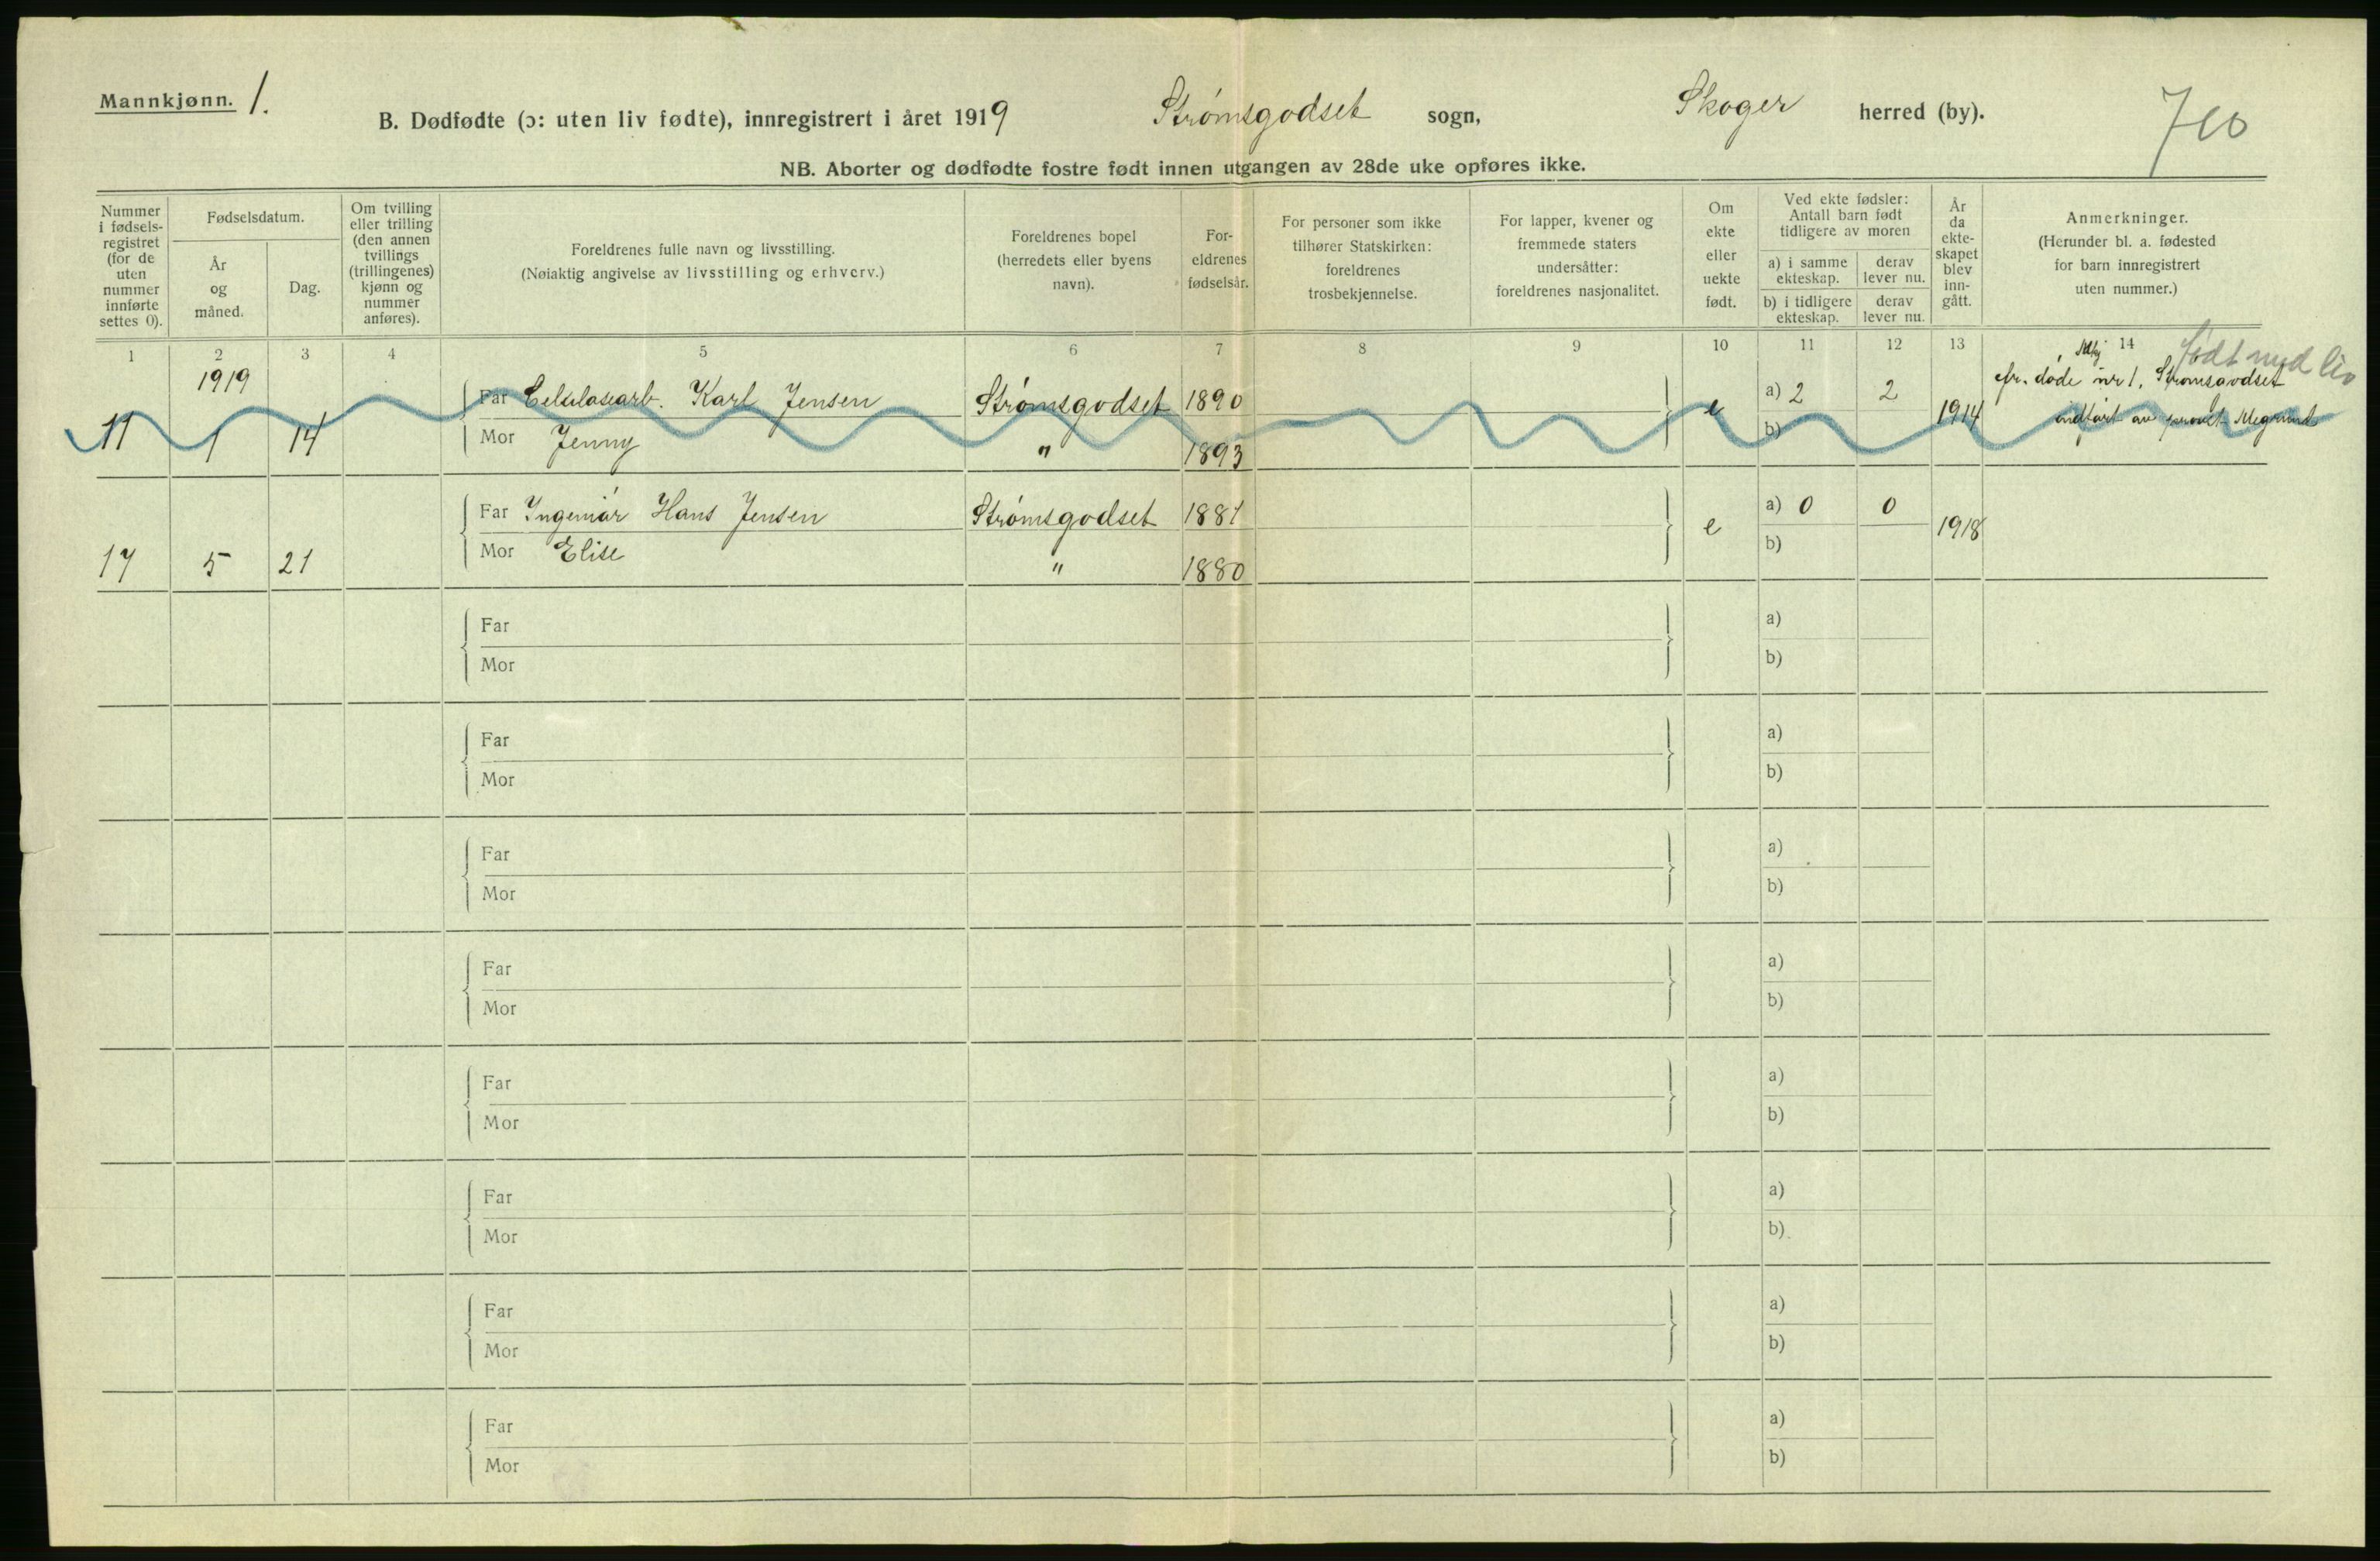 Mannkjønn. 1.
B. Dødfødte (ɔ: uten liv fødte), innregistrert i året 1919 Strømsgodset sogn, Skoger herred (by).
NB. Aborter og dødfødte fostre født innen utgangen av 28de uke opføres ikke.
Nummer
i fødsels-
registret
(for de
uten
nummer
innførte
settes 0).
Fødselsdatum.
År
og
måned.
Dag.
Om tvilling
eller trilling
(den annen
tvillings
(trillingenes)
kjønn og
nummer
anføres).
Foreldrenes fulle navn og livsstilling.
(Nøiaktig angivelse av livsstilling og erhverv.)
Foreldrenes bopel
(herredets eller byens
navn).
For-
eldrenes
fødselsår.
For personer som ikke
tilhører Statskirken:
foreldrenes
trosbekjennelse.
For lapper, kvener og
fremmede staters
undersåtter:
foreldrenes nasjonalitet.
Om
ekte
eller
uekte
født.
Ved ekte fødsler:
Antall barn født
tidligere av moren
a) i samme
ekteskap.
derav
lever nu.
b) i tidligere
ekteskap.
derav
lever nu.
År
da
ekte-
skapet
blev
inn-
gått.
Anmerkninger.
(Herunder bl. a. fødested
for barn innregistrert
uten nummer.)
1 2 3 4 5 6 7 8 9 10 11 12 13 14
født med liv
1919
Far Karl Jensen Strømsgodset 1890 a) 2 2
cfr. døde nr 1, Strømsgodset
11 1 14 Mor Jenny " 1893 e b) 1914
indført av
Far Ingemar Hans Jensen Strømsgodset 1881 a) 0 0
17 5 21 Mor Elise " 1880 e b) 1918
Far a)
Mor b)
Far a)
Mor b)
Far a)
Mor b)
Far a)
Mor b)
Far a)
Mor b)
Far a)
Mor b)
Far a)
Mor b)
Far a)
Mor b)